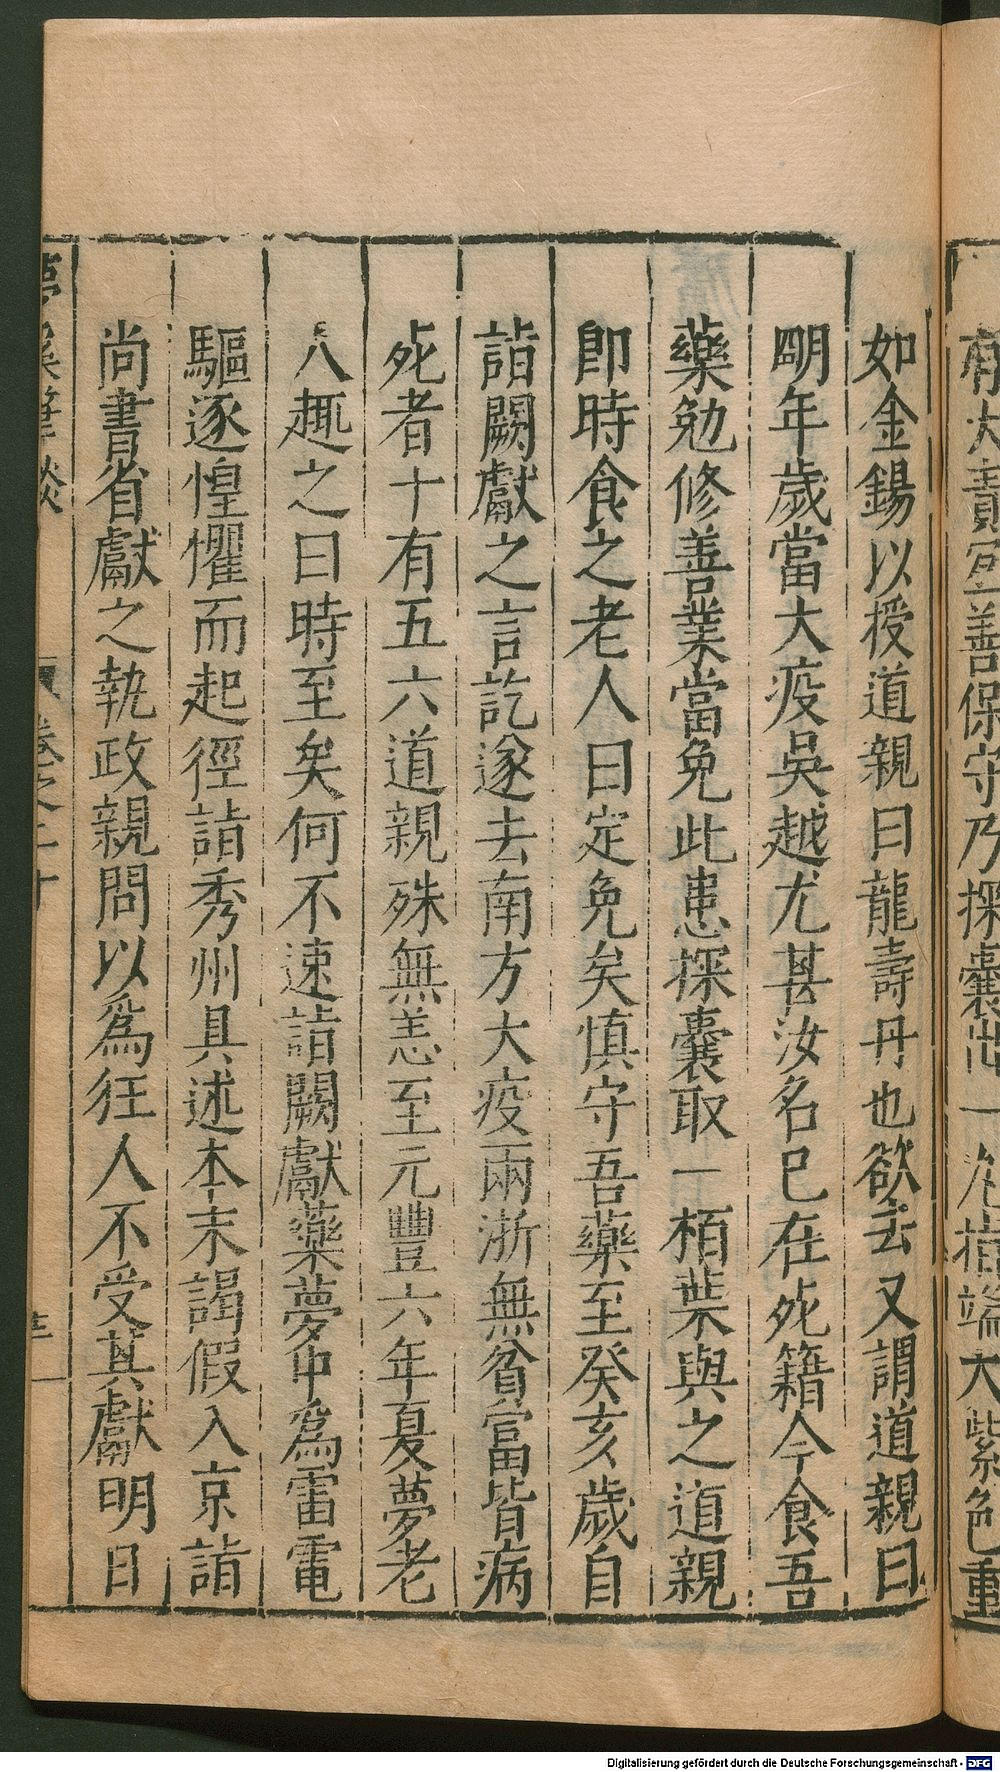 有大責宜善保守乃探囊出一丸指端大紫色重
如金錫以授道親曰龍壽丹也欲去又謂道親曰
明年歲當大疫吳越尤甚汝名已在死籍今食吾
藥勉修善業當免此患探囊取一栢葉與之道親
即時食之老人曰定免矣慎守吾藥至癸亥歲自
詣闕獻之言訖遂去南方大疫兩浙無貧富皆病
死者十有五六道親殊無恙至元豐六年夏夢老
人趣之曰時至矣何不速詣闕獻藥夢中爲雷電
驅逐惶懼而起徑詣秀州具述本末謁假入京詣
尚書省獻之執政親問以爲狂人不受其獻明日
夢溪筆談 卷之二十
Digitalisierung gefördert durch die Deutsche Forschungsgemeinschaft - DFG